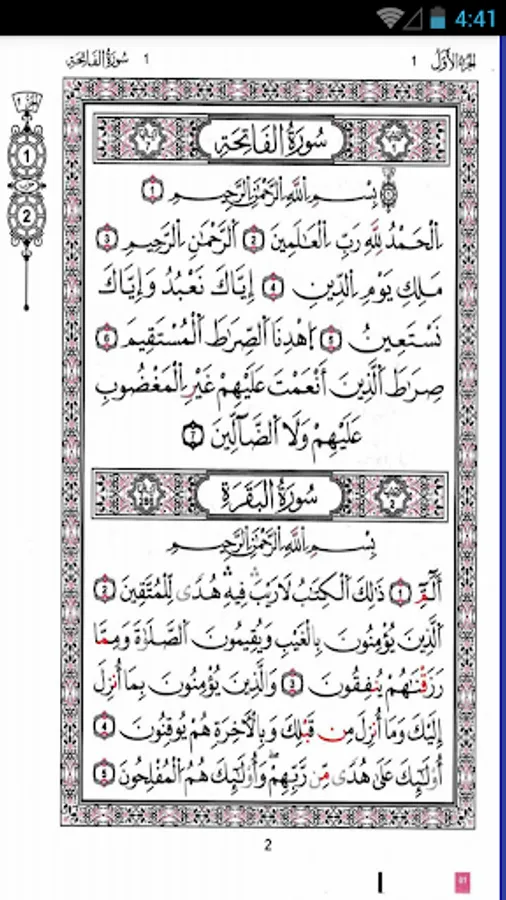 4:41
الجزء الأول 1
1 سورة الفاتحة
1
2
سُورَةُ الفَاتِحَةِ
بِسْمِ اللَّهِ الرَّحْمَٰنِ الرَّحِيمِ ١
الْحَمْدُ لِلَّهِ رَبِّ الْعَالَمِينَ ٢ الرَّحْمَٰنِ الرَّحِيمِ ٣
مَلِكِ يَوْمِ الدِّينِ ٤ إِيَّاكَ نَعْبُدُ وَإِيَّاكَ
نَسْتَعِينُ ٥ اهْدِنَا الصِّرَاطَ الْمُسْتَقِيمَ ٦
صِرَاطَ الَّذِينَ أَنْعَمْتَ عَلَيْهِمْ غَيْرِ الْمَغْضُوبِ
عَلَيْهِمْ وَلَا الضَّآلِّينَ ٧
سُورَةُ البَقَرَةِ
بِسْمِ اللَّهِ الرَّحْمَٰنِ الرَّحِيمِ
الٓمٓ ١ ذَٰلِكَ الْكِتَٰبُ لَا رَيْبَ فِيهِ هُدًى لِلْمُتَّقِينَ ٢
الَّذِينَ يُؤْمِنُونَ بِالْغَيْبِ وَيُقِيمُونَ الصَّلَوٰةَ وَمِمَّا
رَزَقْنَٰهُمْ يُنفِقُونَ ٣ وَالَّذِينَ يُؤْمِنُونَ بِمَا أُنزِلَ
إِلَيْكَ وَمَا أُنزِلَ مِن قَبْلِكَ وَبِالْآخِرَةِ هُمْ يُوقِنُونَ ٤
أُوْلَٰٓئِكَ عَلَىٰ هُدًى مِّن رَّبِّهِمْ وَأُوْلَٰٓئِكَ هُمُ الْمُفْلِحُونَ ٥
2